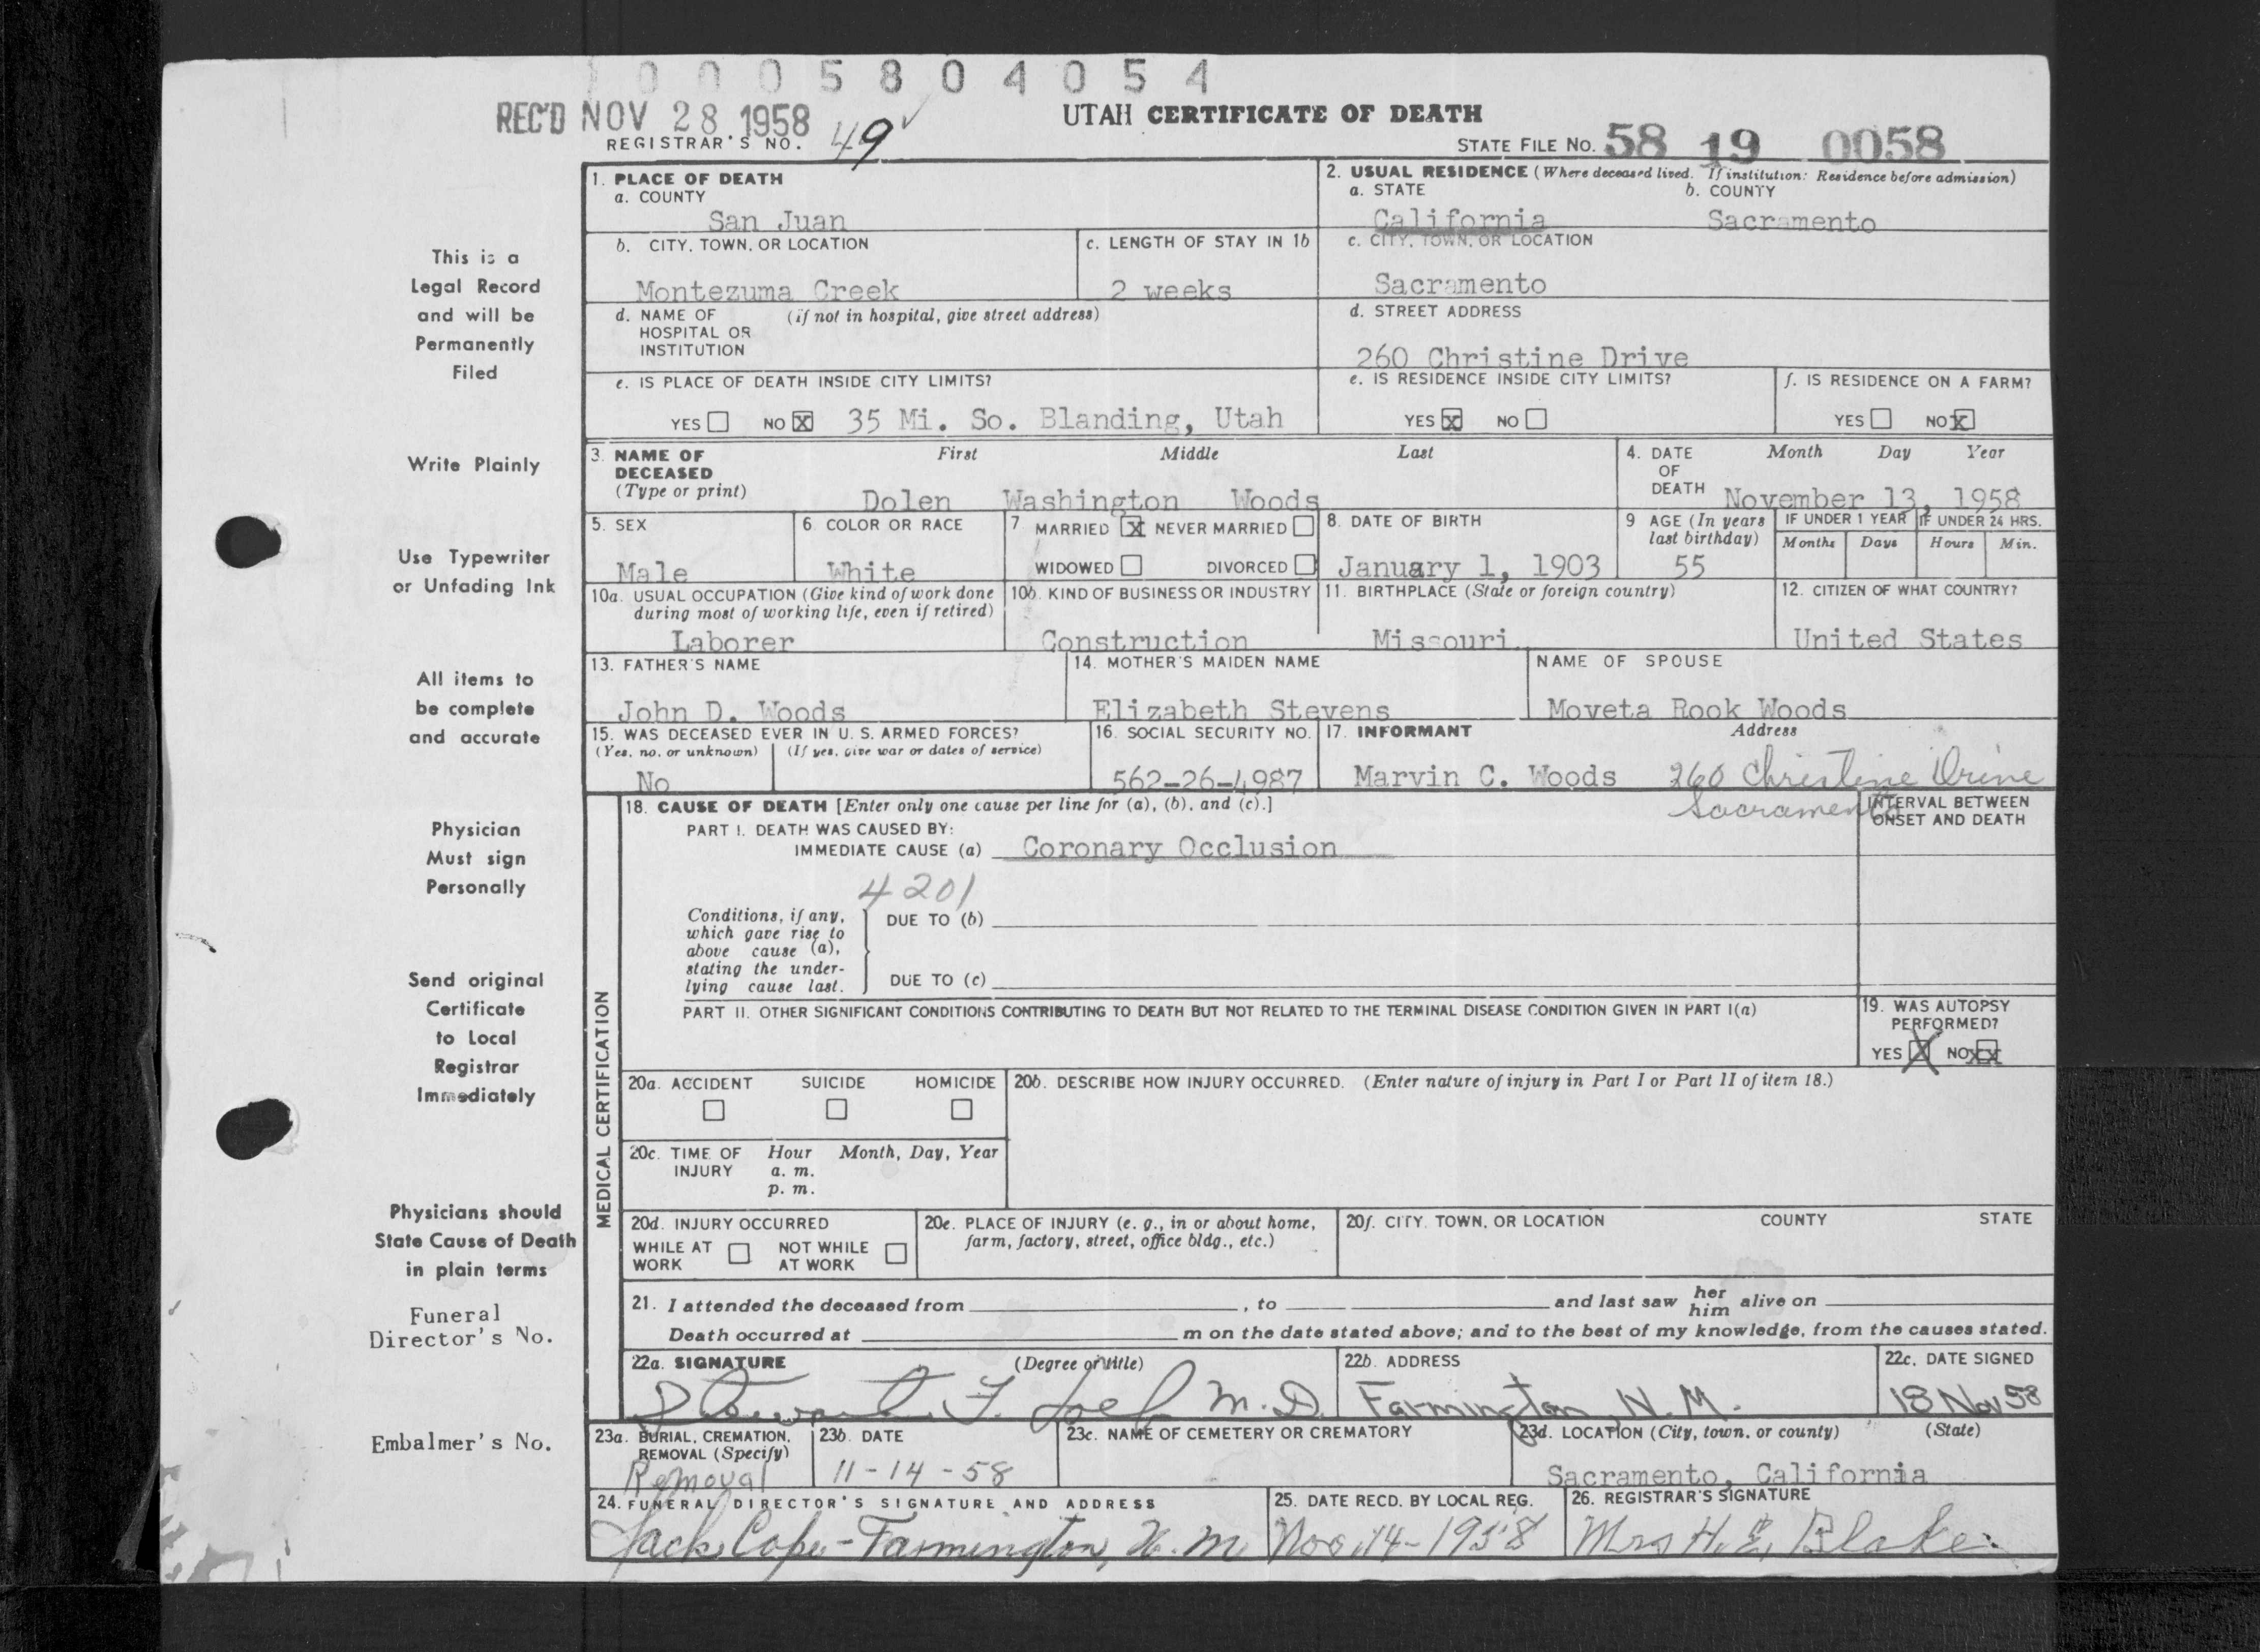 0 0 0 5 8 0 4 0 5 4
REC'D NOV 28 1958
REGISTRAR'S NO. 49
UTAH CERTIFICATE OF DEATH
STATE FILE NO. 58 19 0058
This is a
Legal Record
and will be
Permanently
Filed
Write Plainly
Use Typewriter
or Unfading Ink
All items to
be complete
and accurate
Physician
Must sign
Personally
Send original
Certificate
to Local
Registrar
Immediately
Physicians should
State Cause of Death
in plain terms
Funeral
Director's No.
Embalmer's No.
1. PLACE OF DEATH
a. COUNTY
San Juan
2. USUAL RESIDENCE (Where deceased lived. If institution: Residence before admission)
a. STATE b. COUNTY
California Sacramento
b. CITY, TOWN, OR LOCATION
Montezuma Creek
c. LENGTH OF STAY IN 1b
2 weeks
c. CITY, TOWN, OR LOCATION
Sacramento
d. NAME OF (if not in hospital, give street address)
HOSPITAL OR
INSTITUTION
d. STREET ADDRESS
260 Christine Drive
e. IS PLACE OF DEATH INSIDE CITY LIMITS?
YES NO X 35 Mi. So. Blanding, Utah
e. IS RESIDENCE INSIDE CITY LIMITS?
YES X NO
f. IS RESIDENCE ON A FARM?
YES NO X
3. NAME OF First Middle Last
DECEASED
(Type or print)
Dolen Washington Woods
4. DATE Month Day Year
OF
DEATH November 13, 1958
5. SEX
Male
6. COLOR OR RACE
White
7 MARRIED X NEVER MARRIED
WIDOWED DIVORCED
8. DATE OF BIRTH
January 1, 1903
9 AGE (In years
last birthday)
55
IF UNDER 1 YEAR IF UNDER 24 HRS.
Months Days Hours Min.
10a. USUAL OCCUPATION (Give kind of work done
during most of working life, even if retired)
Laborer
10b. KIND OF BUSINESS OR INDUSTRY
Construction
11. BIRTHPLACE (State or foreign country)
Missouri
12. CITIZEN OF WHAT COUNTRY?
United States
13. FATHER'S NAME
John D. Woods
14. MOTHER'S MAIDEN NAME
Elizabeth Stevens
NAME OF SPOUSE
Moveta Rook Woods
15. WAS DECEASED EVER IN U. S. ARMED FORCES?
(Yes, no, or unknown) (If yes, give war or dates of service)
No
16. SOCIAL SECURITY NO.
562-26-4987
17. INFORMANT Address
Marvin C. Woods 260 Christine Drive
Sacramento
MEDICAL CERTIFICATION
18. CAUSE OF DEATH [Enter only one cause per line for (a), (b), and (c).]
INTERVAL BETWEEN
ONSET AND DEATH
PART I. DEATH WAS CAUSED BY:
IMMEDIATE CAUSE (a) Coronary Occlusion
4201
Conditions, if any,
which gave rise to
above cause (a),
stating the under-
lying cause last.
DUE TO (b)
DUE TO (c)
PART II. OTHER SIGNIFICANT CONDITIONS CONTRIBUTING TO DEATH BUT NOT RELATED TO THE TERMINAL DISEASE CONDITION GIVEN IN PART I(a)
19. WAS AUTOPSY
PERFORMED?
YES X NO XX
20a. ACCIDENT SUICIDE HOMICIDE
20b. DESCRIBE HOW INJURY OCCURRED. (Enter nature of injury in Part I or Part II of item 18.)
20c. TIME OF Hour Month, Day, Year
INJURY a. m.
p. m.
20d. INJURY OCCURRED
WHILE AT NOT WHILE
WORK AT WORK
20e. PLACE OF INJURY (e. g., in or about home,
farm, factory, street, office bldg., etc.)
20f. CITY, TOWN, OR LOCATION COUNTY STATE
21. I attended the deceased from , to and last saw her him alive on
Death occurred at m on the date stated above; and to the best of my knowledge, from the causes stated.
22a. SIGNATURE (Degree or title)
Stewart F. M.D.
22b. ADDRESS
Farmington, N.M.
22c. DATE SIGNED
18 Nov 58
23a. BURIAL, CREMATION,
REMOVAL (Specify)
Removal
23b. DATE
11-14-58
23c. NAME OF CEMETERY OR CREMATORY
23d. LOCATION (City, town, or county) (State)
Sacramento, California
24. FUNERAL DIRECTOR'S SIGNATURE AND ADDRESS
Jack Cope - Farmington, N.M.
25. DATE RECD. BY LOCAL REG.
Nov. 14-1958
26. REGISTRAR'S SIGNATURE
Mrs H. E. Blake.